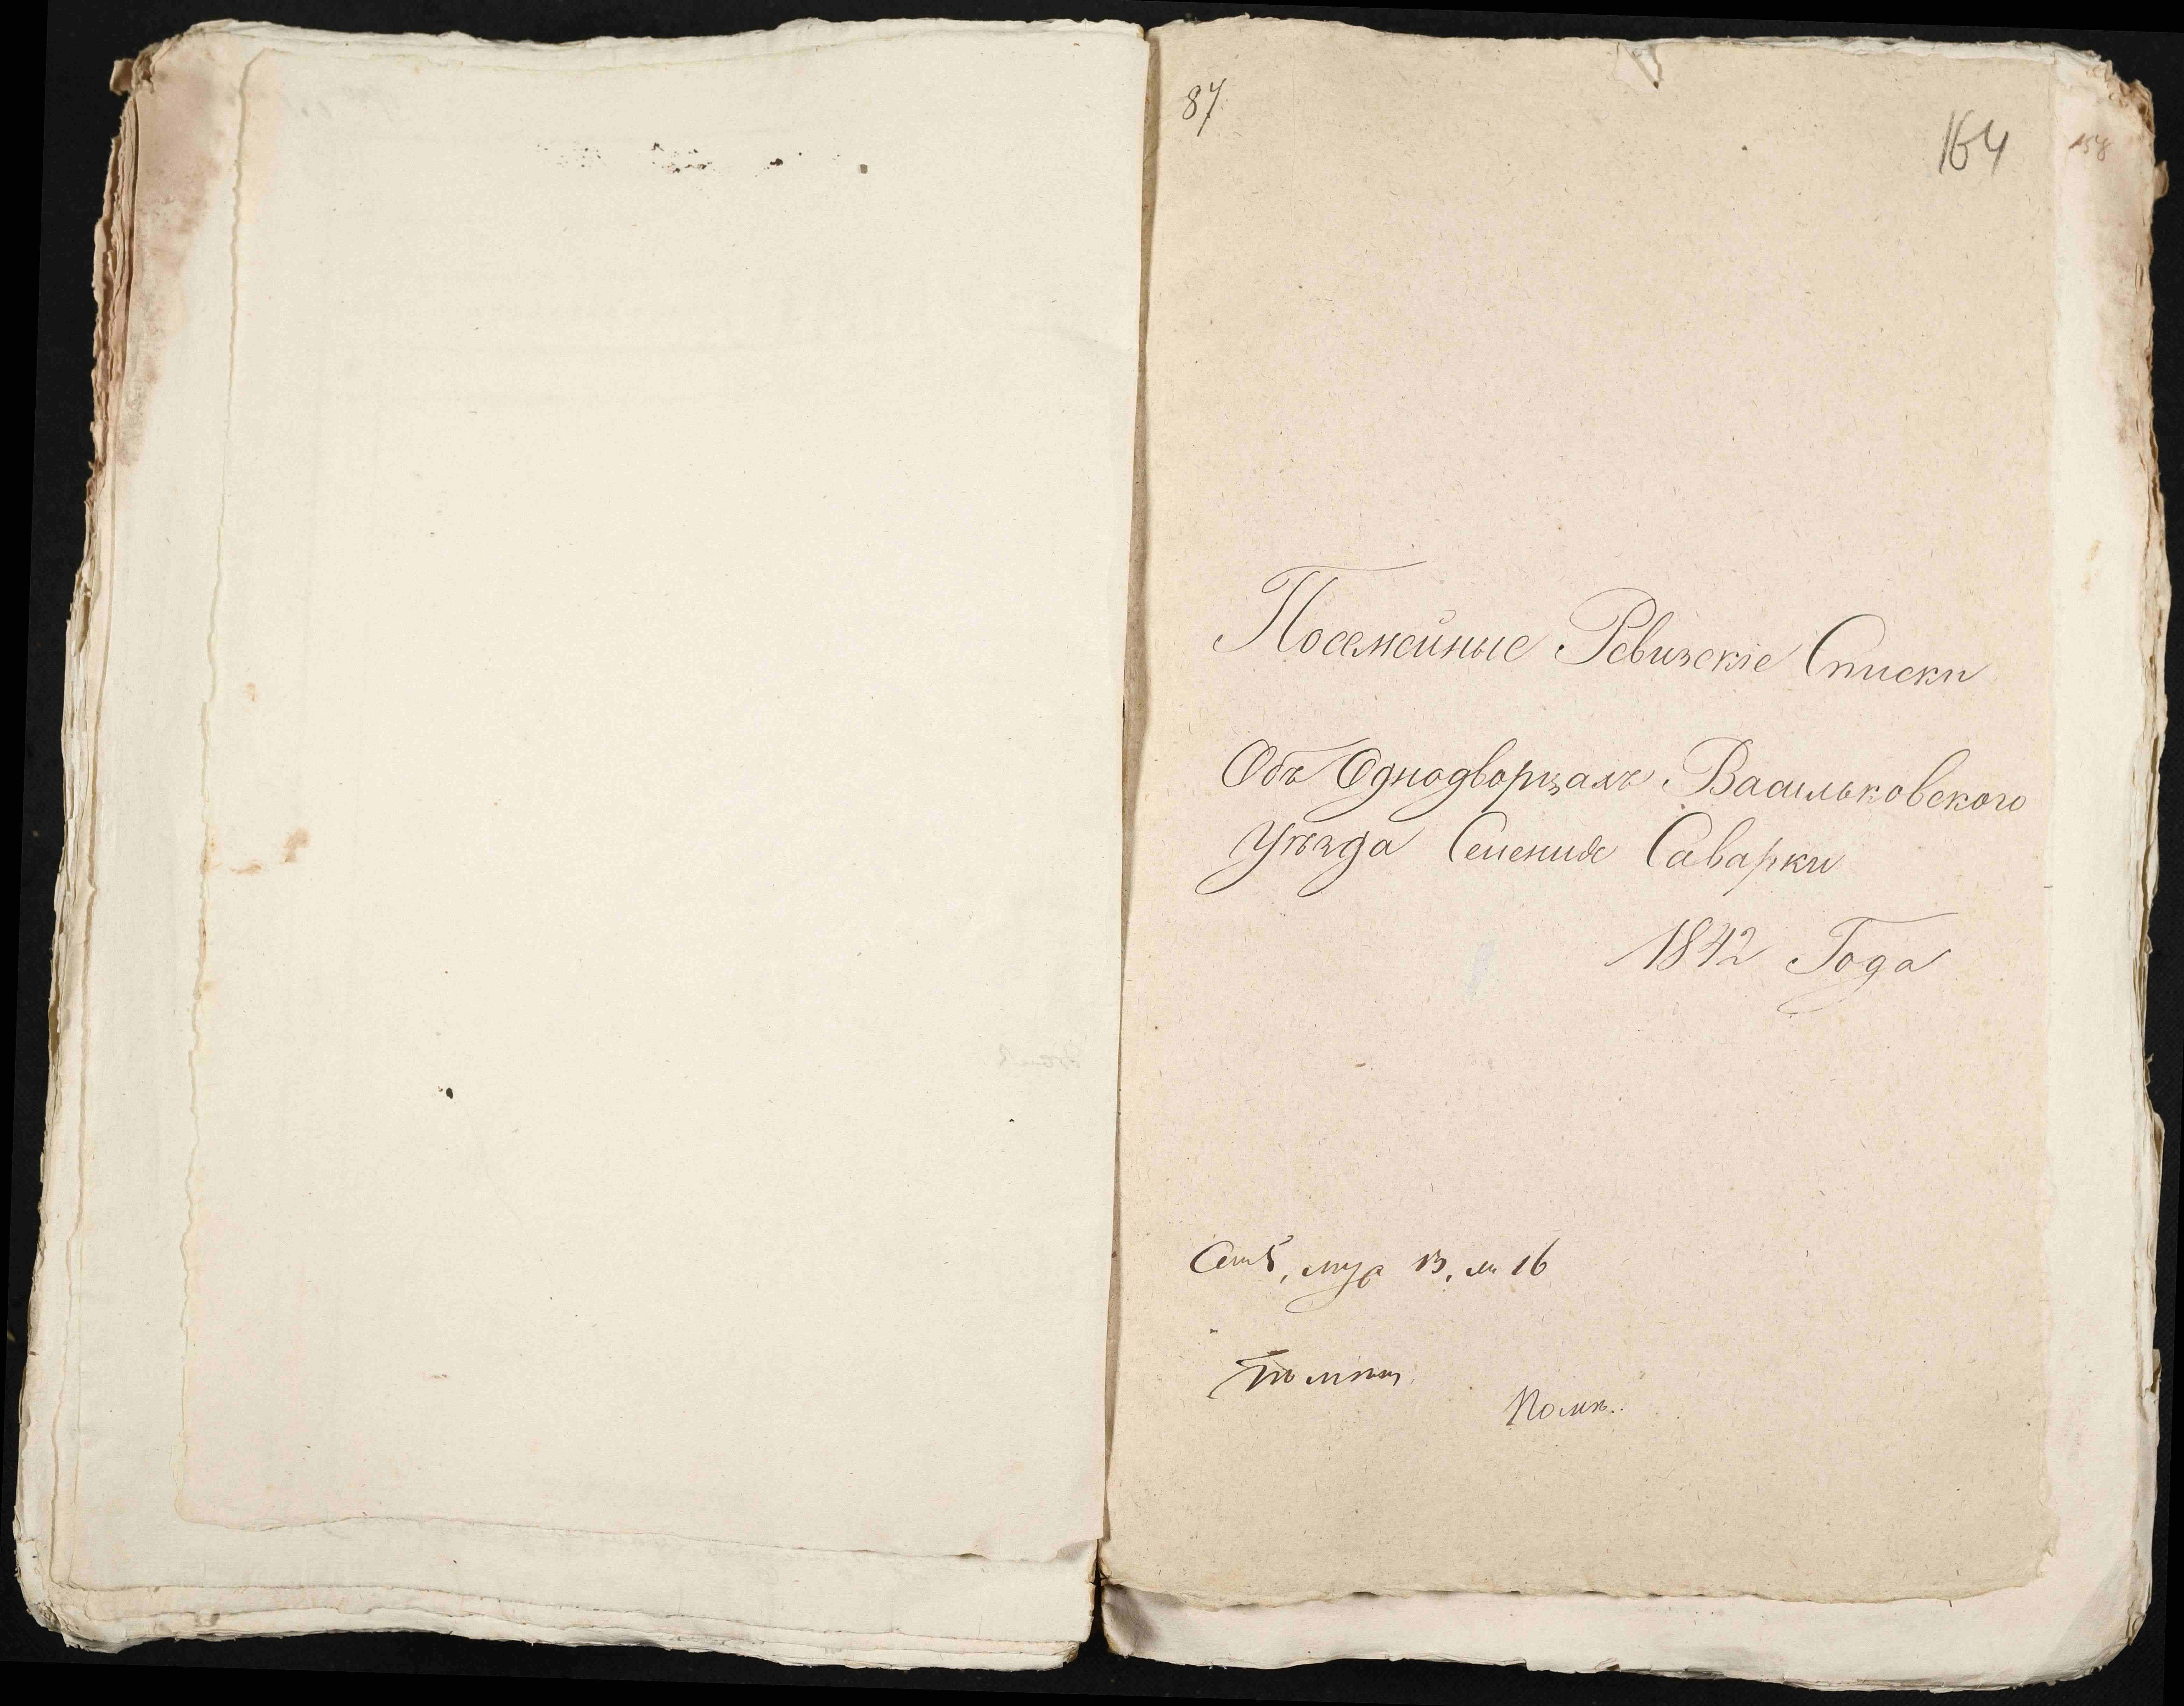 87
164
158
Посемейные Ревизскіе Списки
Объ Однодворцахъ Васильковского
Уѣзда Селенія Саварки
1842 Года
13, 16
Помѣ.